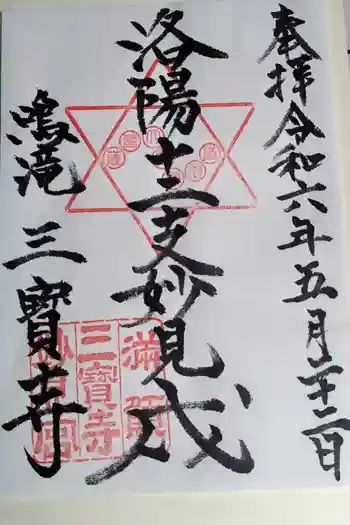 奉拝令和六年五月二十二日
洛陽十二支妙見戌
鳴滝三寳寺
満願
三寳寺